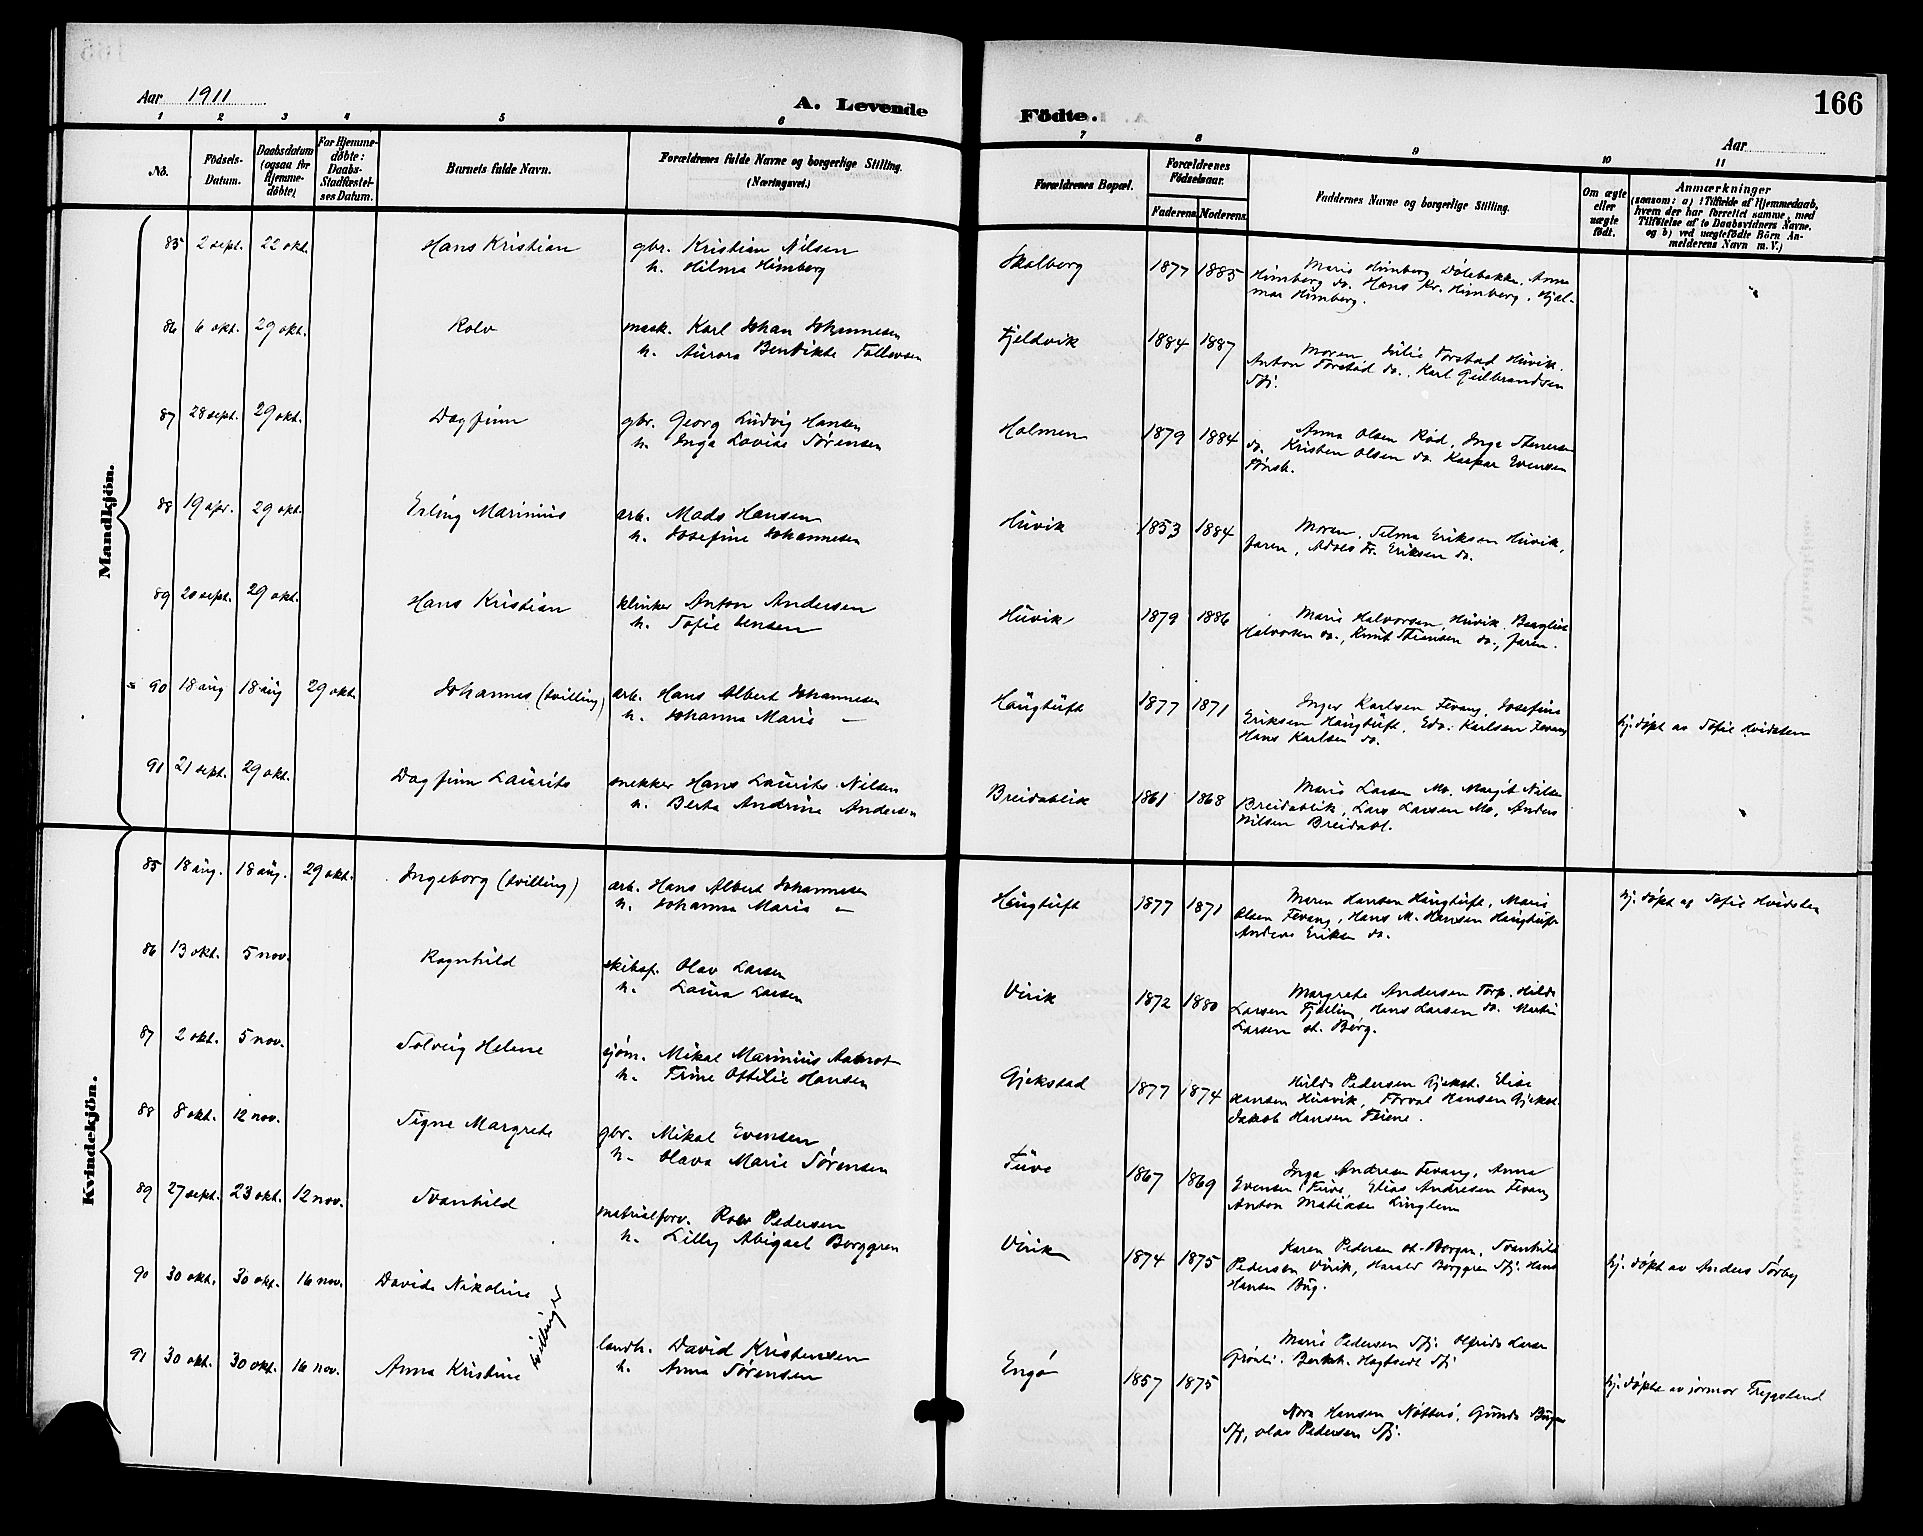 166
Aar 1911
A. Levende
Födte.
Aar
1 2 3 4 5 6
7 8 9 10 11
No.
Födsels-
Datum.
Daabsdatum
(ogsaa for
Hjemme-
döbte)
For Hjemme-
döbte:
Daabs-
Stadfæstel-
ses Datum.
Barnets fulde Navn.
Forældrenes fulde Navne og borgerlige Stilling.
(Næringsvei.)
Forældrenes Bopæl.
Forældrenes
Födselsaar.
Faderens Moderens
Faddernes Navne og borgerlige Stilling.
Om ægte
eller
uægte
födt.
Anmærkninger
(saasom: a) i Tilfælde af Hjemmedaab,
hvem der har forrettet samme, med
Tilföielse af to Daabsvidners Navne.
og b) ved uægtefödte Börn An-
melderens Navn m. V.)
Mandkjön.
85 2 sept. 22 okt. Hans Kristian gbr. Kristian Nilsen
h. Hilma Himberg
Skalberg 1877 1885 Marie Himberg Dölebakke, Anna
Himberg do. Hans Kr. Himberg, Hjal-
mar Himberg.
86 6 okt. 29 okt. Rolv mask. Karl Johan Johannesen
h. Aurora Bendikte Tollevsen
Fjeldvik 1884 1887 Moren, Julie Torstad Huvik.
Anton Torstad do., Karl Gulbrandsen
Sfj.
87 28 sept. 29 okt. Dagfinn gbr. Georg Ludvig Hansen
h. Inga Lovise Sørensen
Holmen 1879 1884 Anna Olsen Rød, Inga
do. Kristen Olsen do. Kaspar Evensen
88 19 apr. 29 okt. Erling Marinius arb. Mads Hansen
h. Josefine Johannesen
Huvik 1853 1884 Moren, Selma Eriksen Huvik,
faren, Adolf Fr. Eriksen do.
89 20 sept. 29 okt. Hans Kristian klinker Anton Andersen
h. Sofie Jensen
Huvik 1879 1886 Marie Halvorsen Huvik
Halvorsen do., Knut do., faren.
90 18 aug 18 aug 29 okt. Johannes (tvilling) arb. Hans Albert Johannesen
h. Johanna Marie —
Haugtuft 1877 1871 Inger Karlsen Fevang, Josefine
Eriksen Haugtuft, Edv. Karlsen Fevang
Hans Karlsen do.
hj. døpt av Sofie Hvidsten
91 21 sept. 29 okt. Dagfinn Laurits snekker Hans Laurits Nilsen
h. Berta Andrine Andersen
Breidablik 1861 1868 Marie Larsen Mo, Margit Nilsen
Breidablik, Lars Larsen Mo, Anders
Nilsen Breidabl.
Kvindekjön.
85 18 aug. 18 aug. 29 okt. Ingeborg (tvilling) arb. Hans Albert Johannesen
h. Johanna Marie —
Haugtuft 1877 1871 Maren Hansen Haugtuft, Marie
Olsen Fevang, Hans M. Hansen Haugtuft
Anders Eriksen do.
hj. døpt av Sofie Hvidsten
86 13 okt. 5 nov. Ragnhild skibsf. Olav Larsen
h. Laura Larsen
Virik 1872 1880 Margrete Andersen Torp, Hilda
Larsen Hans Larsen do. Martin
Larsen st. Berg.
87 2 okt. 5 nov. Solveig Helene sjøm. Mikal Marinius
h. Trine Ottilie Hansen
Gjekstad 1877 1874 Hilda Pedersen Gjekst. Elise
Hansen Huavik, Torval Hansen Gjekst.
Jakob Hansen
88 8 okt. 12 nov. Signe Margrete gbr. Mikal Evensen
h. Olava Marie Sørensen
Tuve 1867 1869 Inga Andresen Fevang, Anna
Evensen Tuve, Elias Andresen Fevang
Anton
89 27 sept. 23 okt. 12 nov. Svanhild matrialforv. Rolv Pedersen
h. Lilly Abigael Borggren
Virik 1874 1875 Karen Pedersen st. Bergan, Svanhild
Pedersen Virik, Harald Borggren Sfj. Hans
Hansen Bug.
hj. døpt av Anders Sørby
90 30 okt. 30 okt. 16 nov. Davida Nikoline
tvillinger
Marie Pedersen Sfj. Larsen
91 30 okt. 30 okt. 16 nov. Anna Kristine landh. David Kristensen
h. Anna Sørensen
Engø 1857 1875
hj. døpte av jormor
Nora Hansen Nøtterø, Gunda
Sfj, Olav Pedersen Sfj.